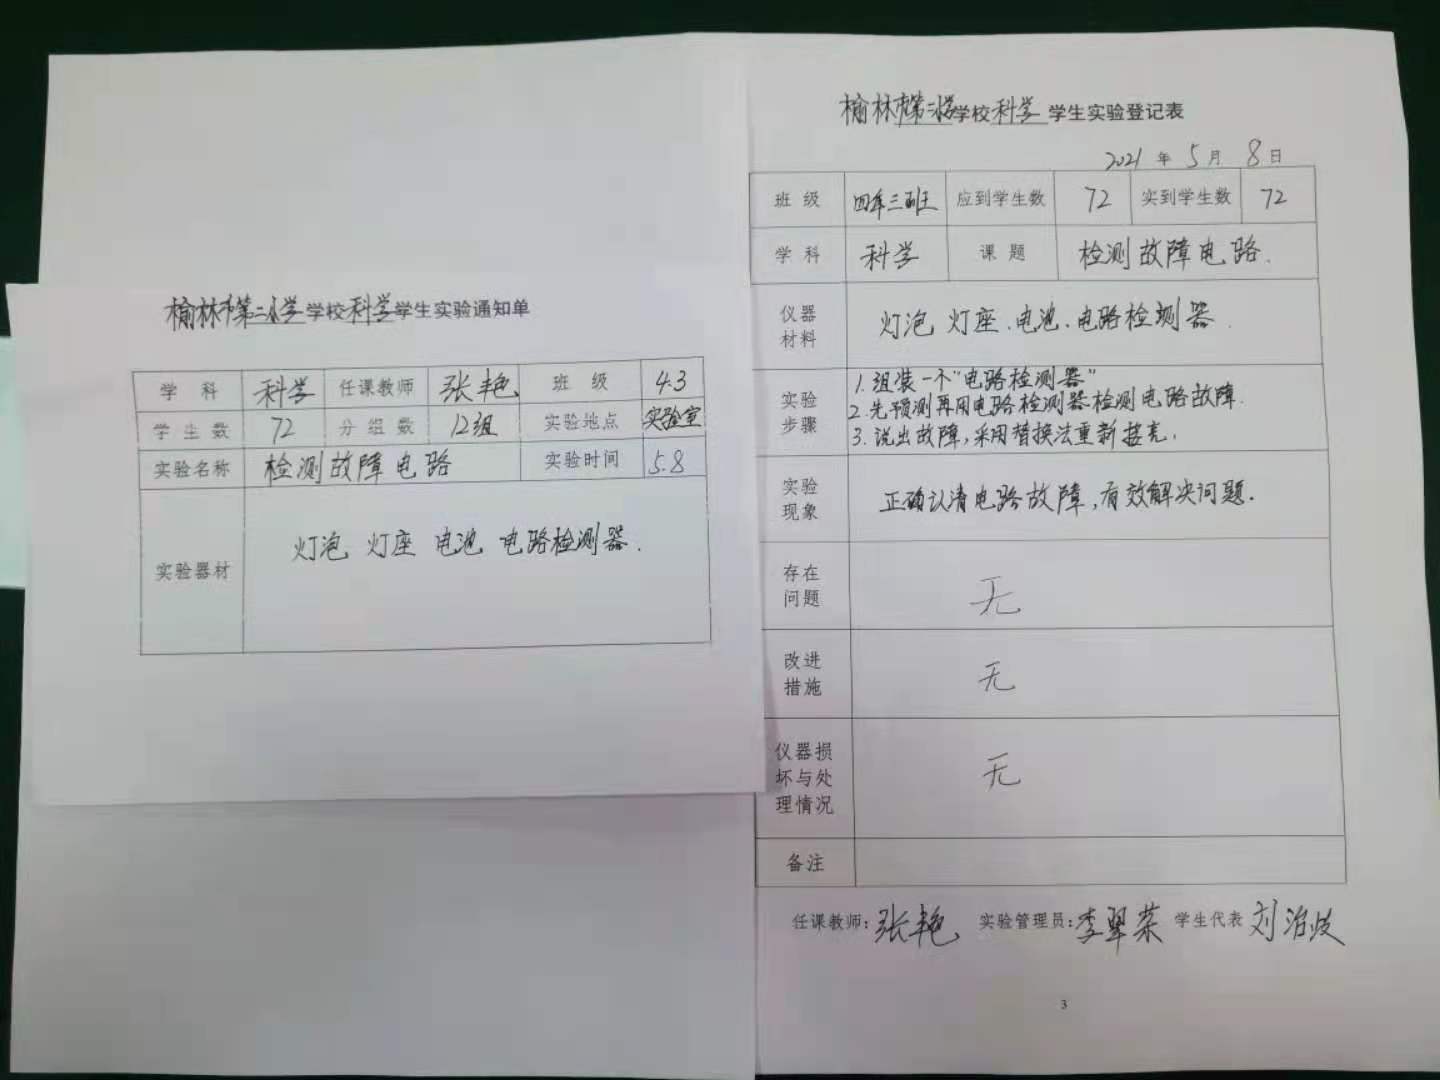 榆林市第二小学学校科学学生实验通知单
学 科 科学 任课教师 张艳 班 级 4.3
学生数 72 分组数 12组 实验地点 实验室
实验名称 检测故障电路 实验时间 5.8
实验器材 灯泡 灯座 电池 电路检测器.
榆林市第二小学学校科学学生实验登记表
2021年5月8日
班 级 四年三班 应到学生数 72 实到学生数 72
学 科 科学 课 题 检测故障电路.
仪器
材料
灯泡 灯座、电池、电路检测器.
实验
步骤
1. 组装一个"电路检测器"
2. 先预测再用电路检测器检测电路故障.
3. 说出故障,采用替换法重新接亮.
实验
现象
正确认清电路故障,有效解决问题.
存在
问题
无
改进
措施
无
仪器损
坏与处
理情况
无
备注
任课教师: 张艳 实验管理员: 李翠荣 学生代表 刘
3